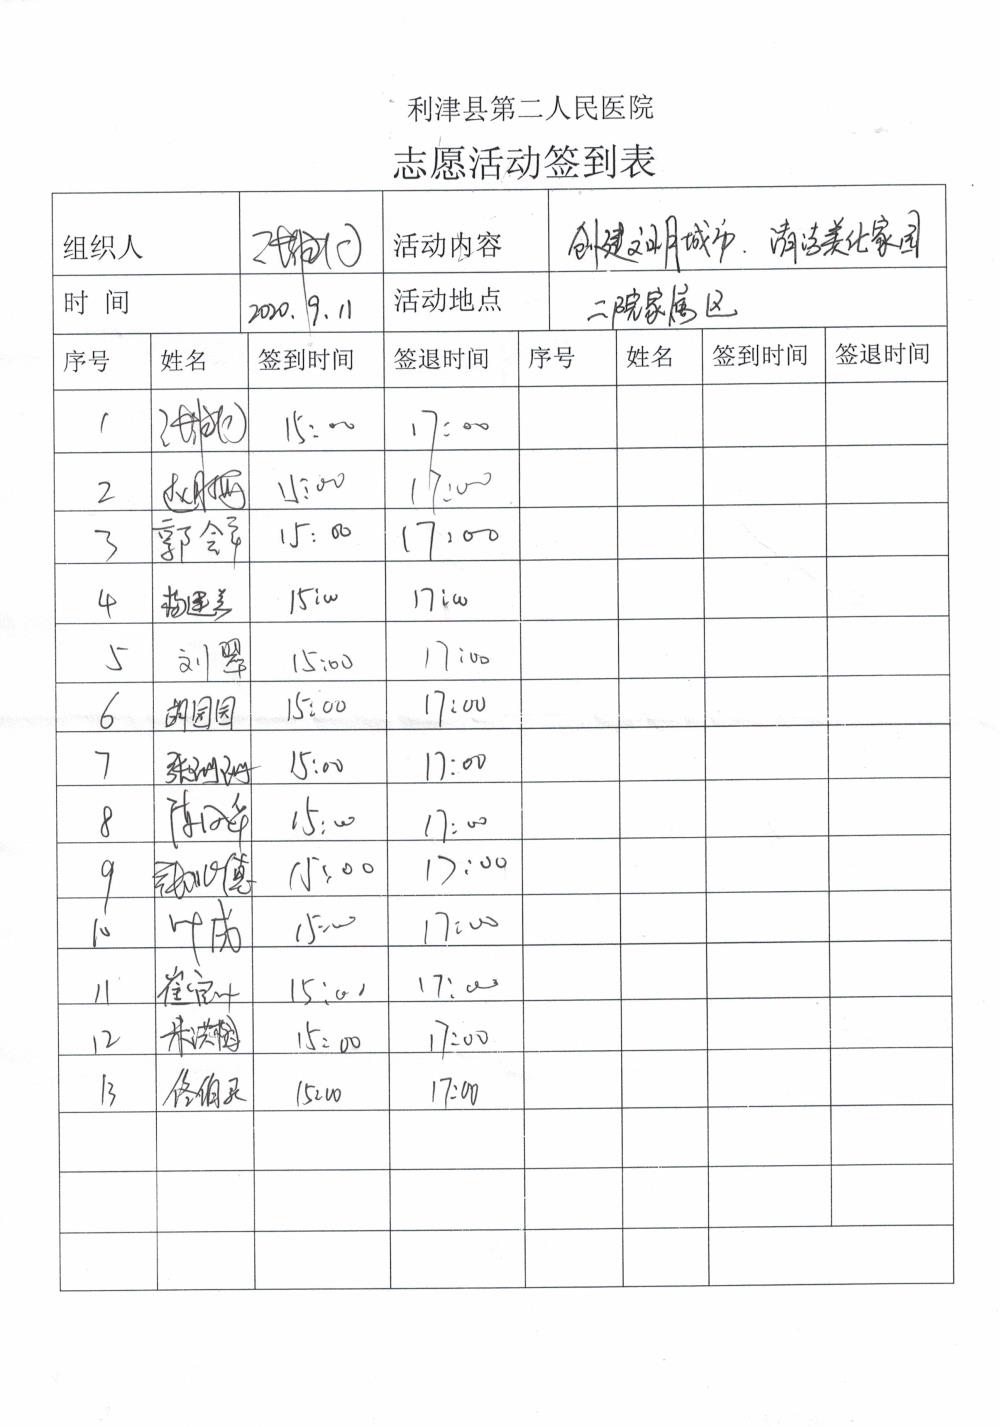 利津县第二人民医院
志愿活动签到表
组织人 活动内容 创建文明城市.清洁美化家园
时 间 2020.9.11 活动地点 二院家属区
序号 姓名 签到时间 签退时间 序号 姓名 签到时间 签退时间
1 15:00 17:00
2 15:00 17:00
3 郭会军 15:00 17:00
4 杨建美 15:00 17:00
5 刘翠 15:00 17:00
6 胡园园 15:00 17:00
7 张珊珊 15:00 17:00
8 15:00 17:00
9 15:00 17:00
10 叶成 15:00 17:00
11 15:00 17:00
12 15:00 17:00
13 15:00 17:00